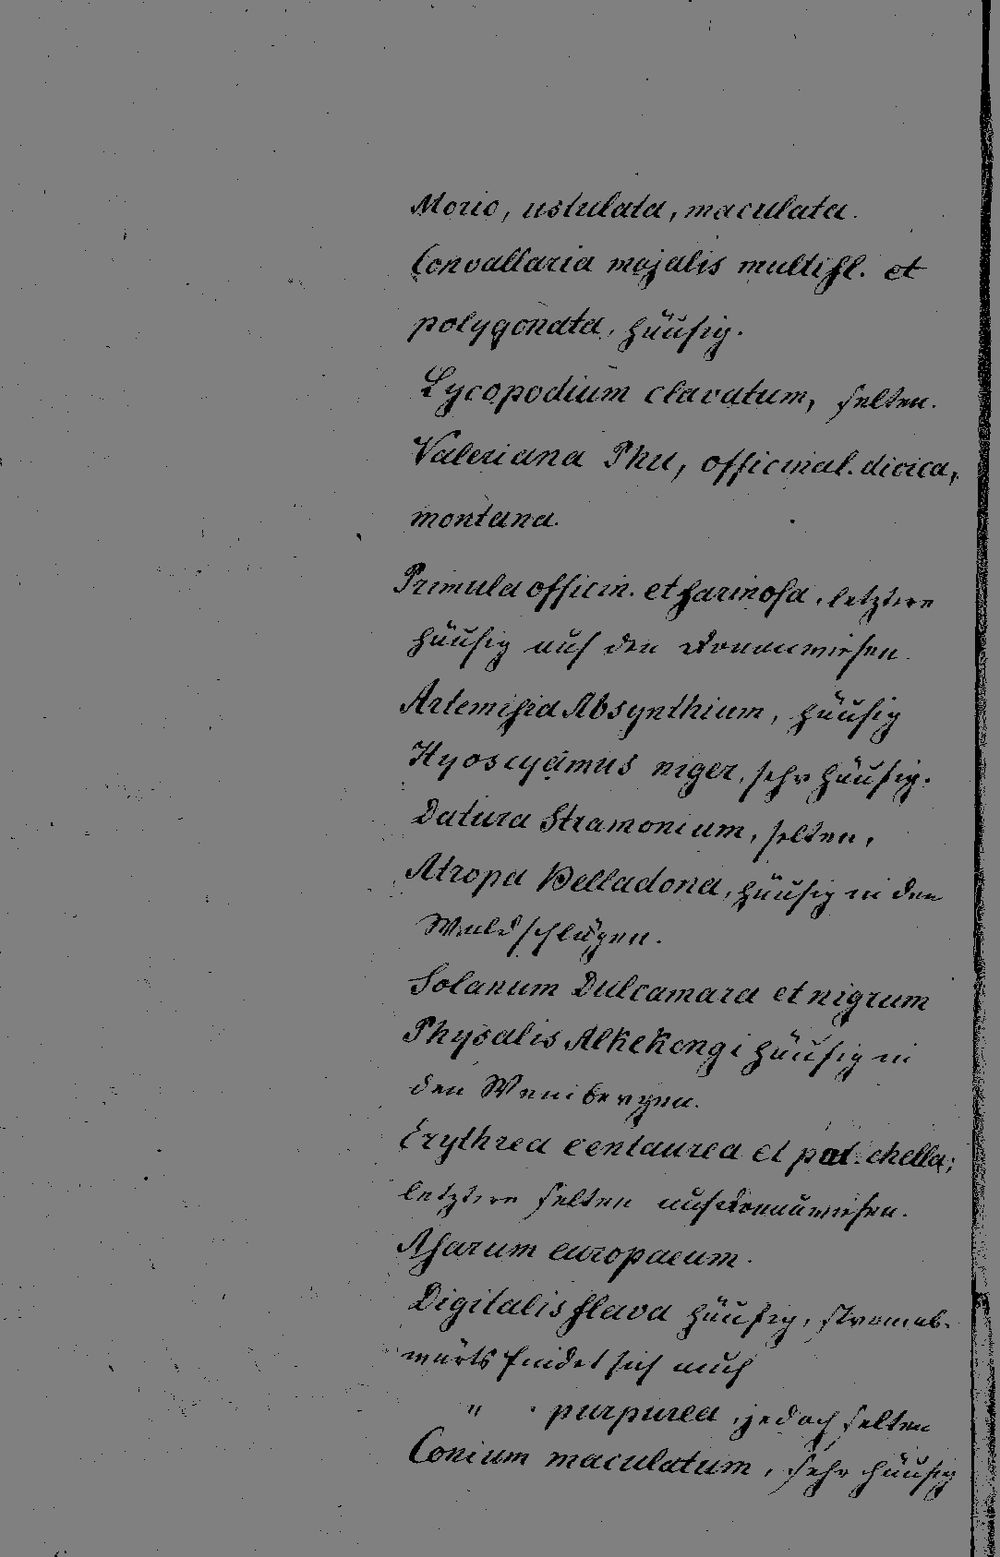 Morio, ustulata, maculata.
Convallaria majalis multifl. et
polygonata, häufig.
Lycopodium clavatum, selten.
Valeriana Phu, officinal. dioica,
montana.
Primula officin. et farinosa, letztere
häufig auf den Donauwiesen.
Artemisia Absynthium, häufig
Hyoscyamus niger, sehr häufig.
Datura Stramonium, selten,
Atropa Belladona, häufig in den
Waldschlägen.
Solanum Dulcamara et nigrum
Physalis Alkekengi häufig in
den Weinbergen.
Erythrea centaurea et pul. chella;
letztere selten auf Donauwiesen.
Asarum europaeum.
Digitalis flava häufig, stromab-
wärts findet sich auch
" purpurea, jedoch selten
Conium maculatum, sehr häufig